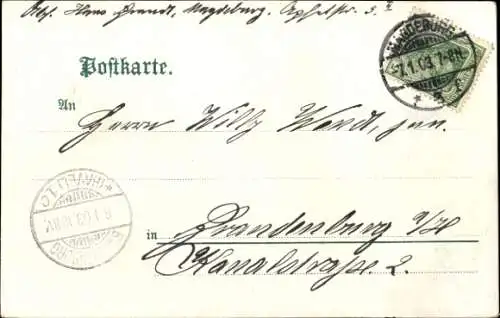 Abs. Hans Brandt, Magdeburg,
MAGDEBURG
7.1.03. 7-8N.
Postkarte.
An
Herrn Willy Wendt, jun.
8.1.03.
in Brandenburg a/H
Kanalstrasse 2.